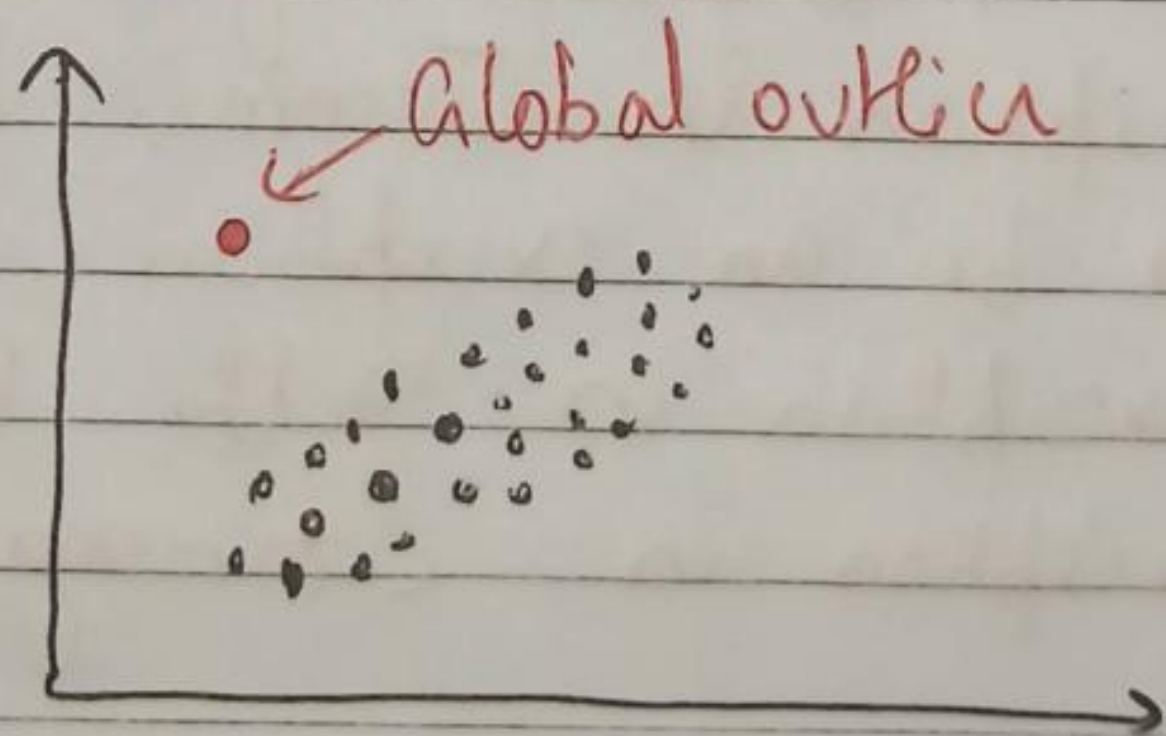 Global outlier